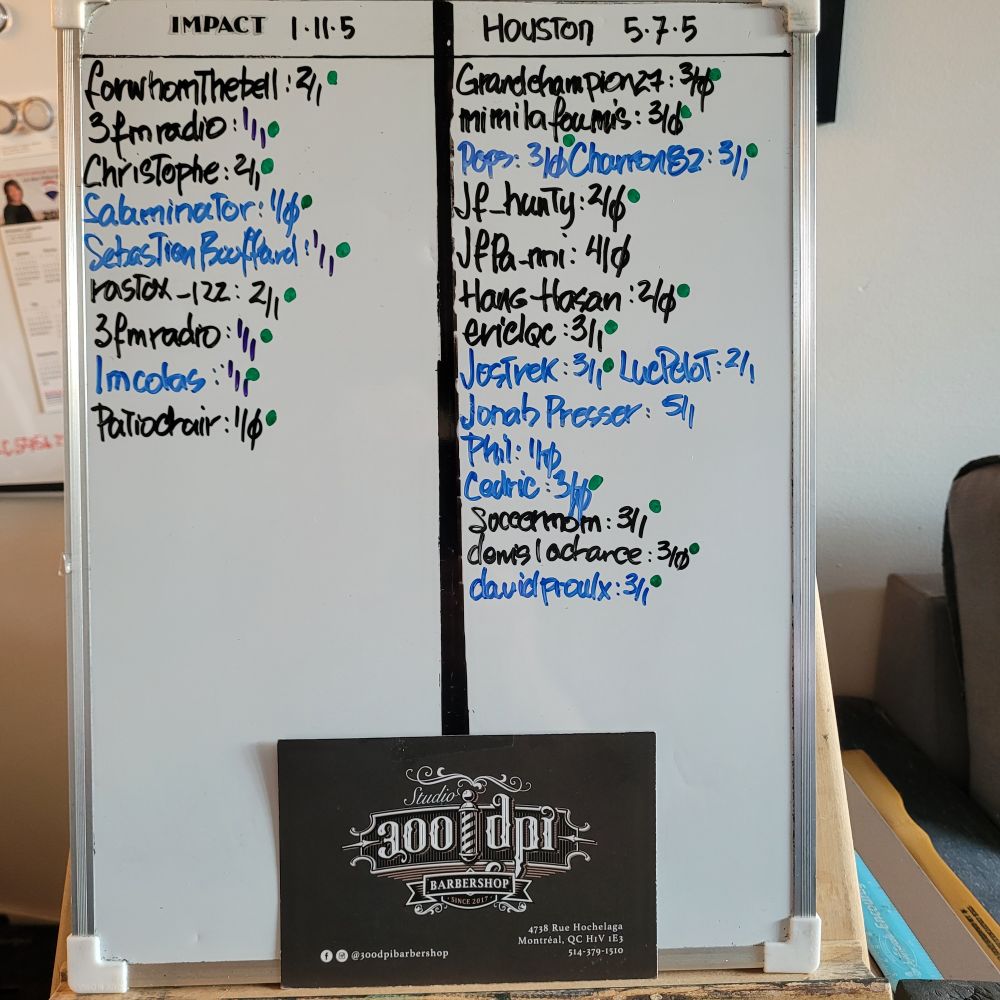 IMPACT 1·11·5
forwhomThebell : 2/1
3fmradio : 1/1
ChrisTophe : 2/1
SalaminaTor : 1/0
SebasTien Bouffard : 1/1
rastox_122 : 2/1
3fmradio : 1/1
lmcolas : 1/1
Patiochair : 1/0
HOUSTON 5·7·5
Grandchampion27 : 3/0
mimilafourmis : 3/0
Pops : 3/0 Charron82 : 3/1
Jf_hunTy : 2/0
JfPa-mi : 4/0
Hans-Hasan : 2/0
ericlqc : 3/1
JosTrek : 3/1 LucPeloT : 2/1
Jonah Presser : 5/1
Phil : 1/0
Cedric : 3/0
Soccermom : 3/1
denislachance : 3/0
davidproulx : 3/1
Studio
300 dpi
BARBERSHOP
· SINCE 2017 ·
4738 Rue Hochelaga
Montréal, QC H1V 1E3
514-379-1510
@300dpibarbershop